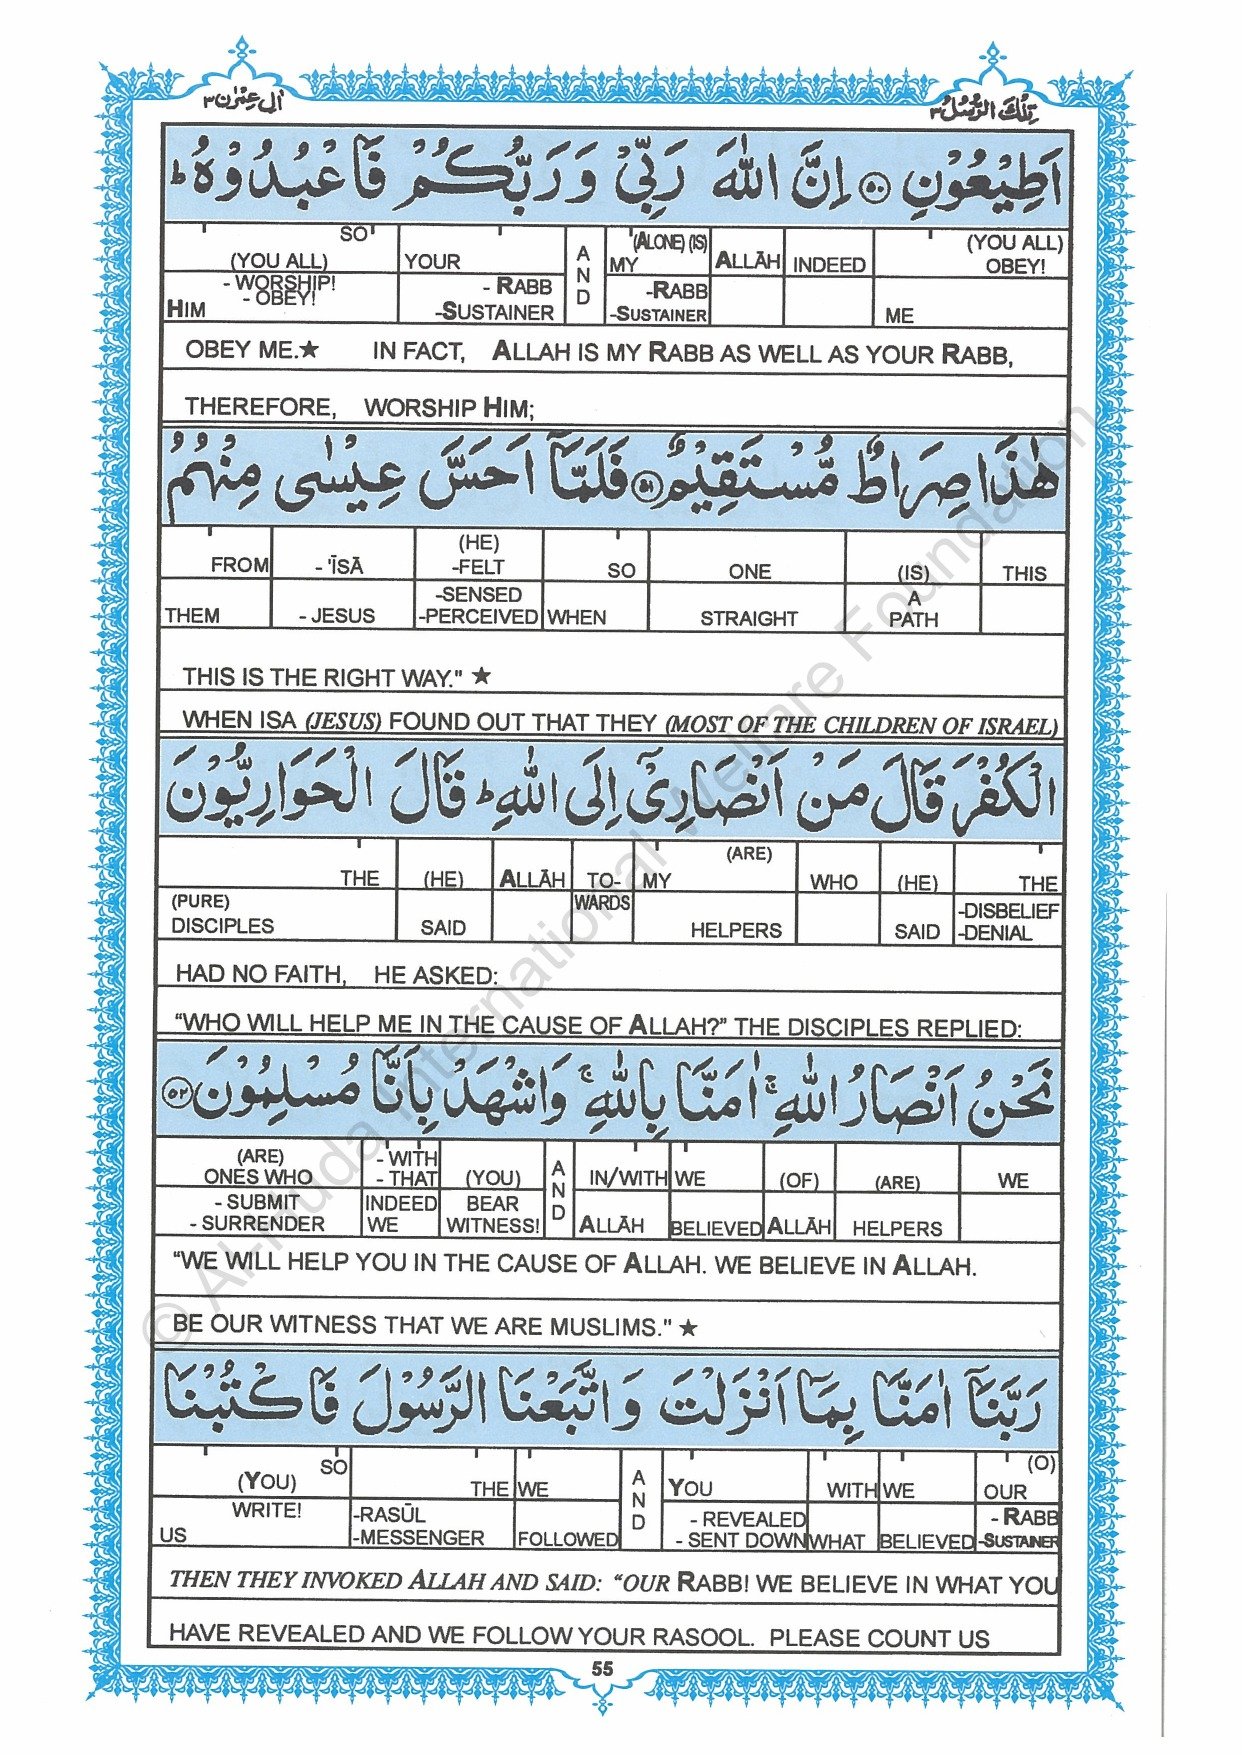 اٰلِ عِمْرٰن ٣
تِلْكَ الرُّسُلُ ٣
اَطِيْعُوْنِ ۝٥٠ اِنَّ اللّٰهَ رَبِّيْ وَرَبُّكُمْ فَاعْبُدُوْهُ ؕ
SO (YOU ALL) YOUR AND (ALONE) (IS) MY ALLĀH INDEED (YOU ALL) OBEY!
HIM - WORSHIP! - OBEY! - RABB -SUSTAINER -RABB -SUSTAINER ME
OBEY ME.★ IN FACT, ALLAH IS MY RABB AS WELL AS YOUR RABB,
THEREFORE, WORSHIP HIM;
هٰذَا صِرَاطٌ مُّسْتَقِيْمٌ ۝٥١ فَلَمَّآ اَحَسَّ عِيْسٰى مِنْهُمُ
FROM - 'ĪSĀ (HE) -FELT SO ONE (IS) THIS
THEM - JESUS -SENSED -PERCEIVED WHEN STRAIGHT A PATH
THIS IS THE RIGHT WAY." ★
WHEN ISA (JESUS) FOUND OUT THAT THEY (MOST OF THE CHILDREN OF ISRAEL)
الْكُفْرَ قَالَ مَنْ اَنْصَارِيْٓ اِلَى اللّٰهِ ؕ قَالَ الْحَوَارِيُّوْنَ
THE (HE) ALLĀH TO- MY (ARE) WHO (HE) THE
(PURE) DISCIPLES SAID WARDS HELPERS SAID -DISBELIEF -DENIAL
HAD NO FAITH, HE ASKED:
“WHO WILL HELP ME IN THE CAUSE OF ALLAH?” THE DISCIPLES REPLIED:
نَحْنُ اَنْصَارُ اللّٰهِ ۚ اٰمَنَّا بِاللّٰهِ ۚ وَاشْهَدْ بِاَنَّا مُسْلِمُوْنَ ۝٥٢
(ARE) ONES WHO - WITH - THAT (YOU) AND IN/WITH WE (OF) (ARE) WE
- SUBMIT - SURRENDER INDEED WE BEAR WITNESS! ALLĀH BELIEVED ALLĀH HELPERS
“WE WILL HELP YOU IN THE CAUSE OF ALLAH. WE BELIEVE IN ALLAH.
BE OUR WITNESS THAT WE ARE MUSLIMS." ★
رَبَّنَآ اٰمَنَّا بِمَآ اَنْزَلْتَ وَاتَّبَعْنَا الرَّسُوْلَ فَاكْتُبْنَا
SO (YOU) THE WE AND YOU WITH WE (O) OUR
US WRITE! -RASŪL -MESSENGER FOLLOWED - REVEALED - SENT DOWN WHAT BELIEVED - RABB -SUSTAINER
THEN THEY INVOKED ALLAH AND SAID: “OUR RABB! WE BELIEVE IN WHAT YOU
HAVE REVEALED AND WE FOLLOW YOUR RASOOL. PLEASE COUNT US
55
© Al-Huda International Welfare Foundation